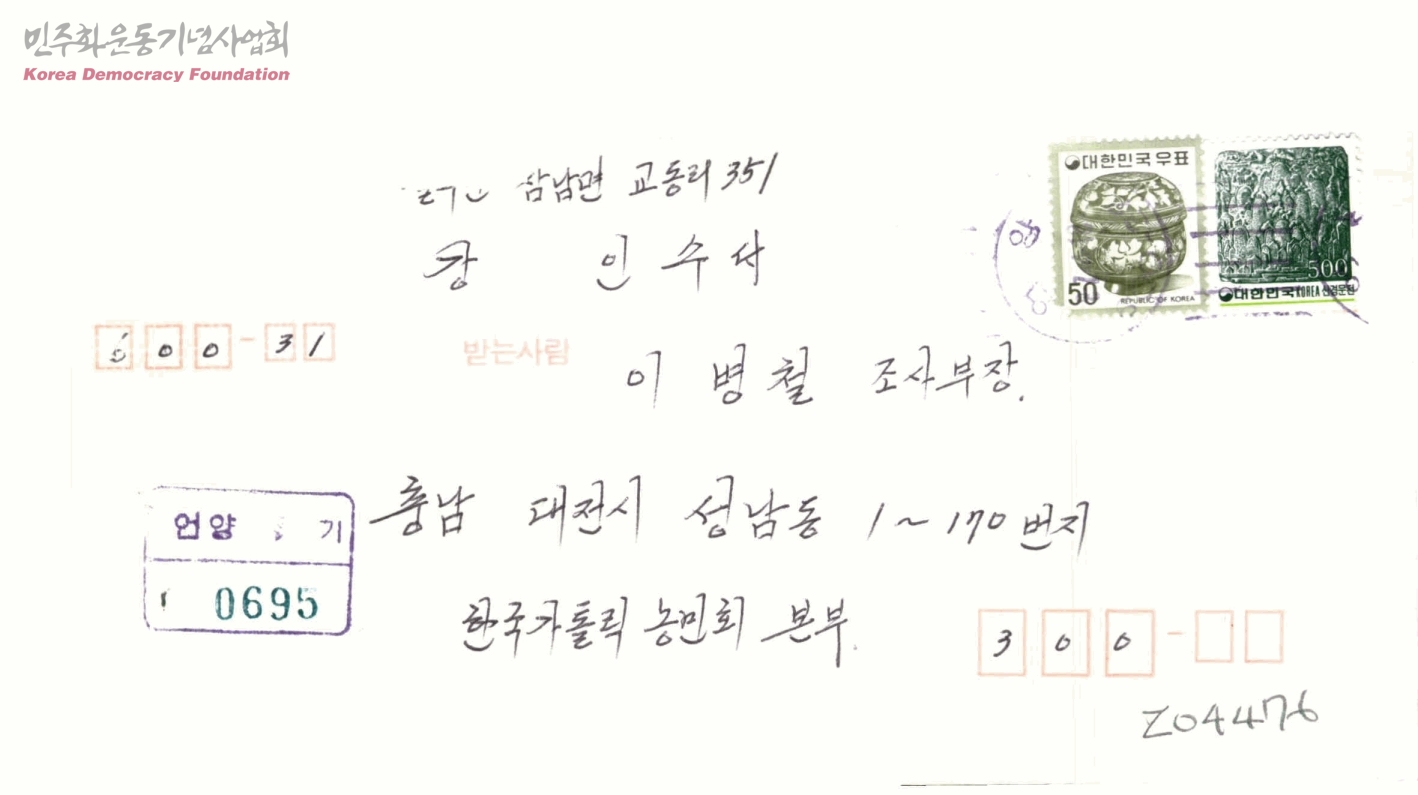 민주화운동기념사업회
Korea Democracy Foundation
삼남면 교동리 351
강 인수 서
대한민국우표
50
REPUBLIC OF KOREA
500
대한민국 KOREA
600-31
받는사람
이 병철 조사부장.
충남 대전시 성남동 1~170번지
한국가톨릭 농민회 본부.
언양 기
0695
300-
Z04476